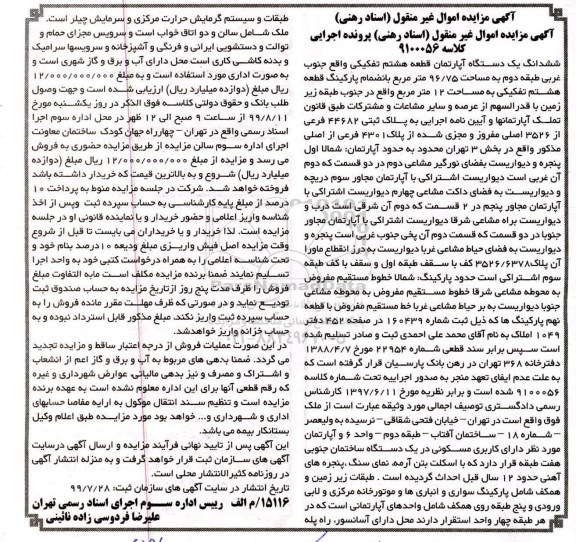 آگهی مزایده اموال غیر منقول (اسناد رهنی)
آگهی مزایده اموال غیر منقول (اسناد رهنی) پرونده اجرایی
کلاسه ۹۱۰۰۰۵۶
ششدانگ یک دستگاه آپارتمان قطعه هشتم تفکیکی واقع جنوب
غربی طبقه دوم به مساحت ۹۶/۷۵ متر مربع بانضمام پارکینگ قطعه
هشتم تفکیکی به مساحت ۱۲ متر مربع واقع در جنوب طبقه زیر
زمین با قدرالسهم از عرصه و سایر مشاعات و مشترکات طبق قانون
تملک آپارتمانها و آیین نامه اجرایی به پلاک ثبتی ۴۴۶۸۲ فرعی
از ۳۵۲۶ اصلی مفروز و مجزی شده از پلاک ۴۳۰۱ فرعی از اصلی
مذکور واقع در بخش ۳ تهران محدود به حدود آپارتمان: شمالا اول
پنجره و دیواریست بفضای نورگیر مشاعی دوم در دو قسمت که دوم
آن غربی است دیواریست اشتراکی با آپارتمان مجاور سوم دریچه
و دیواریست به فضای داکت مشاعی چهارم دیواریست اشتراکی با
آپارتمان مجاور پنجم در ۲ قسمت که دوم آن شرقی است درب و
دیواریست براه مشاعی شرقا دیواریست اشتراکی با آپارتمان مجاور
جنوبا در دو قسمت که قسمت دوم آن پخی جنوب غربی است پنجره و
دیواریست به فضای حیاط مشاعی غربا دیواریست به درز انقطاع ماورا
آن پلاک ۳۵۲۶/۶۳۷۸ کف با سقف طبقه اول و سقف با کف طبقه
سوم اشتراکی است حدود پارکینگ: شمالا خطوط مستقیم مفروض
به محوطه مشاعی شرقا خطوط مستقیم مفروض به محوطه مشاعی
جنوبا دیواریست به بر حیاط مشاعی غربا خط مستقیم مفروض با قطعه
نهم پارکینگ ها که ذیل ثبت شماره ۱۶۰۴۳۹ در صفحه ۴۵۲ دفتر
۱۰۴۹ املاک به نام آقای محمد علی احمدی ثبت و صادر تسلیم شده
است سپس برابر سند قطعی شماره ۲۲۹۵۴ مورخ ۱۳۸۸/۴/۷
دفترخانه ۳۶۸ تهران در رهن بانک پارسیان قرار گرفته است که
به علت عدم ایفای تعهد منجر به صدور اجراییه تحت شماره کلاسه
۹۱۰۰۰۵۶ شده است و برابر نظریه مورخ ۱۳۹۷/۶/۱۱ کارشناس
رسمی دادگستری توصیف اجمالی مورد وثیقه عبارت است از ملک
فوق واقع است در تهران– خیابان فتحی شقاقی – نرسیده به ولیعصر
– شماره ۱۸ – ساختمان آفتاب – طبقه دوم – واحد ۶ و آپارتمان
مورد نظر دارای کاربری مسکونی در یک دستگاه ساختمان جنوبی
هفت طبقه قرار دارد که با اسکلت بتن آرمه، نمای سنگ ،پنجره های
آهنی حدود ۱۲ سال قبل احداث گردیده است . طبقات زیر زمین و
همکف شامل پارکینگ سواری و انباری ها و موتورخانه مرکزی و لابی
ورودی و پنج طبقه روی همکف شامل واحدهای آپارتمانی است که در
هر طبقه چهار واحد استقرار دارند محل دارای آسانسور، راه پله
طبقات و سیستم گرمایش حرارت مرکزی و سرمایش چیلر است.
ملک شامل سالن و دو اتاق خواب است و سرویس مجزای حمام و
توالت و دستشویی ایرانی و فرنگی و آشپزخانه و سرویسها سرامیک
و بدنه کاشی کاری است محل دارای آب و برق و گاز شهری است و
به صورت اداری مورد استفاده است و به مبلغ ۱۲/۰۰۰/۰۰۰/۰۰۰
ریال مبلغ (دوازده میلیارد ریال) ارزیابی شده است و جهت وصول
طلب بانک و حقوق دولتی کلاسه فوق الذکر در روز یکشنبه مورخ
۹۹/۸/۱۱ از ساعت ۹ صبح الی ۱۲ ظهر در محل اداره سوم اجرا
اسناد رسمی واقع در تهران – چهارراه جهان کودک ساختمان معاونت
اجرای اداره سوم سالن مزایده از طریق مزایده حضوری به فروش
می رسد و مزایده از مبلغ ۱۲/۰۰۰/۰۰۰/۰۰۰ ریال مبلغ (دوازده
میلیارد ریال) شروع و به بالاترین قیمت که خریدار داشته باشد
فروخته خواهد شد. شرکت در جلسه مزایده منوط به پرداخت ۱۰
درصد از مبلغ پایه کارشناسی به حساب سپرده ثبت وپس از اخذ
شناسه واریز اعلامی و حضور خریدار و یا نماینده قانونی او در جلسه
مزایده است. لذا خریدار و یا خریداران می بایست تا قبل از شروع
وقت مزایده اصل فیش واریزی مبلغ ودیعه ۱۰درصد بنام خود و
تحت شناسه اعلامی را به همراه درخواست کتبی خود به واحد اجرا
تسلیم نمایند ضمنا برنده مزایده مکلف است مابه التفاوت مبلغ
فروش را ظرف مدت پنج روز ازتاریخ مزایده به حساب صندوق ثبت
تودیع نماید و در صورتی که ظرف مهلت مقرر مانده فروش را به
حساب سپرده ثبت واریز نکند. مبلغ مذکور قابل استرداد نبوده و به
حساب خزانه واریز خواهدشد.
در این صورت عملیات فروش از درجه اعتبار ساقط و مزایده تجدید
می گردد. ضمنا بدهی های مربوط به آب و برق و گاز اعم از انشعاب
و اشتراک و مصرف و نیز بدهی مالیاتی، عوارض شهرداری و غیره
که رقم قطعی آنها برای این اداره معلوم نشده است به عهده برنده
مزایده است و تنظیم سند انتقال موکول به ارایه مفاصا حسابهای
اداری و شهرداری و... خواهد بود مورد مزایده طبق اعلام وکیل
بستانکار بیمه می باشد.
این آگهی پس از تایید نهائی فرآیند مزایده و ارسال آگهی درسایت
آگهی های سازمان ثبت قرار خواهد گرفت و به منزله انتشار آگهی
در روزنامه کثیرالانتشار محلی است.
تاریخ انتشار در سایت آگهی های سازمان ثبت: ۹۹/۷/۲۸
۱۵۱۱۶/م الف رییس اداره سوم اجرای اسناد رسمی تهران
علیرضا فردوسی زاده نائینی